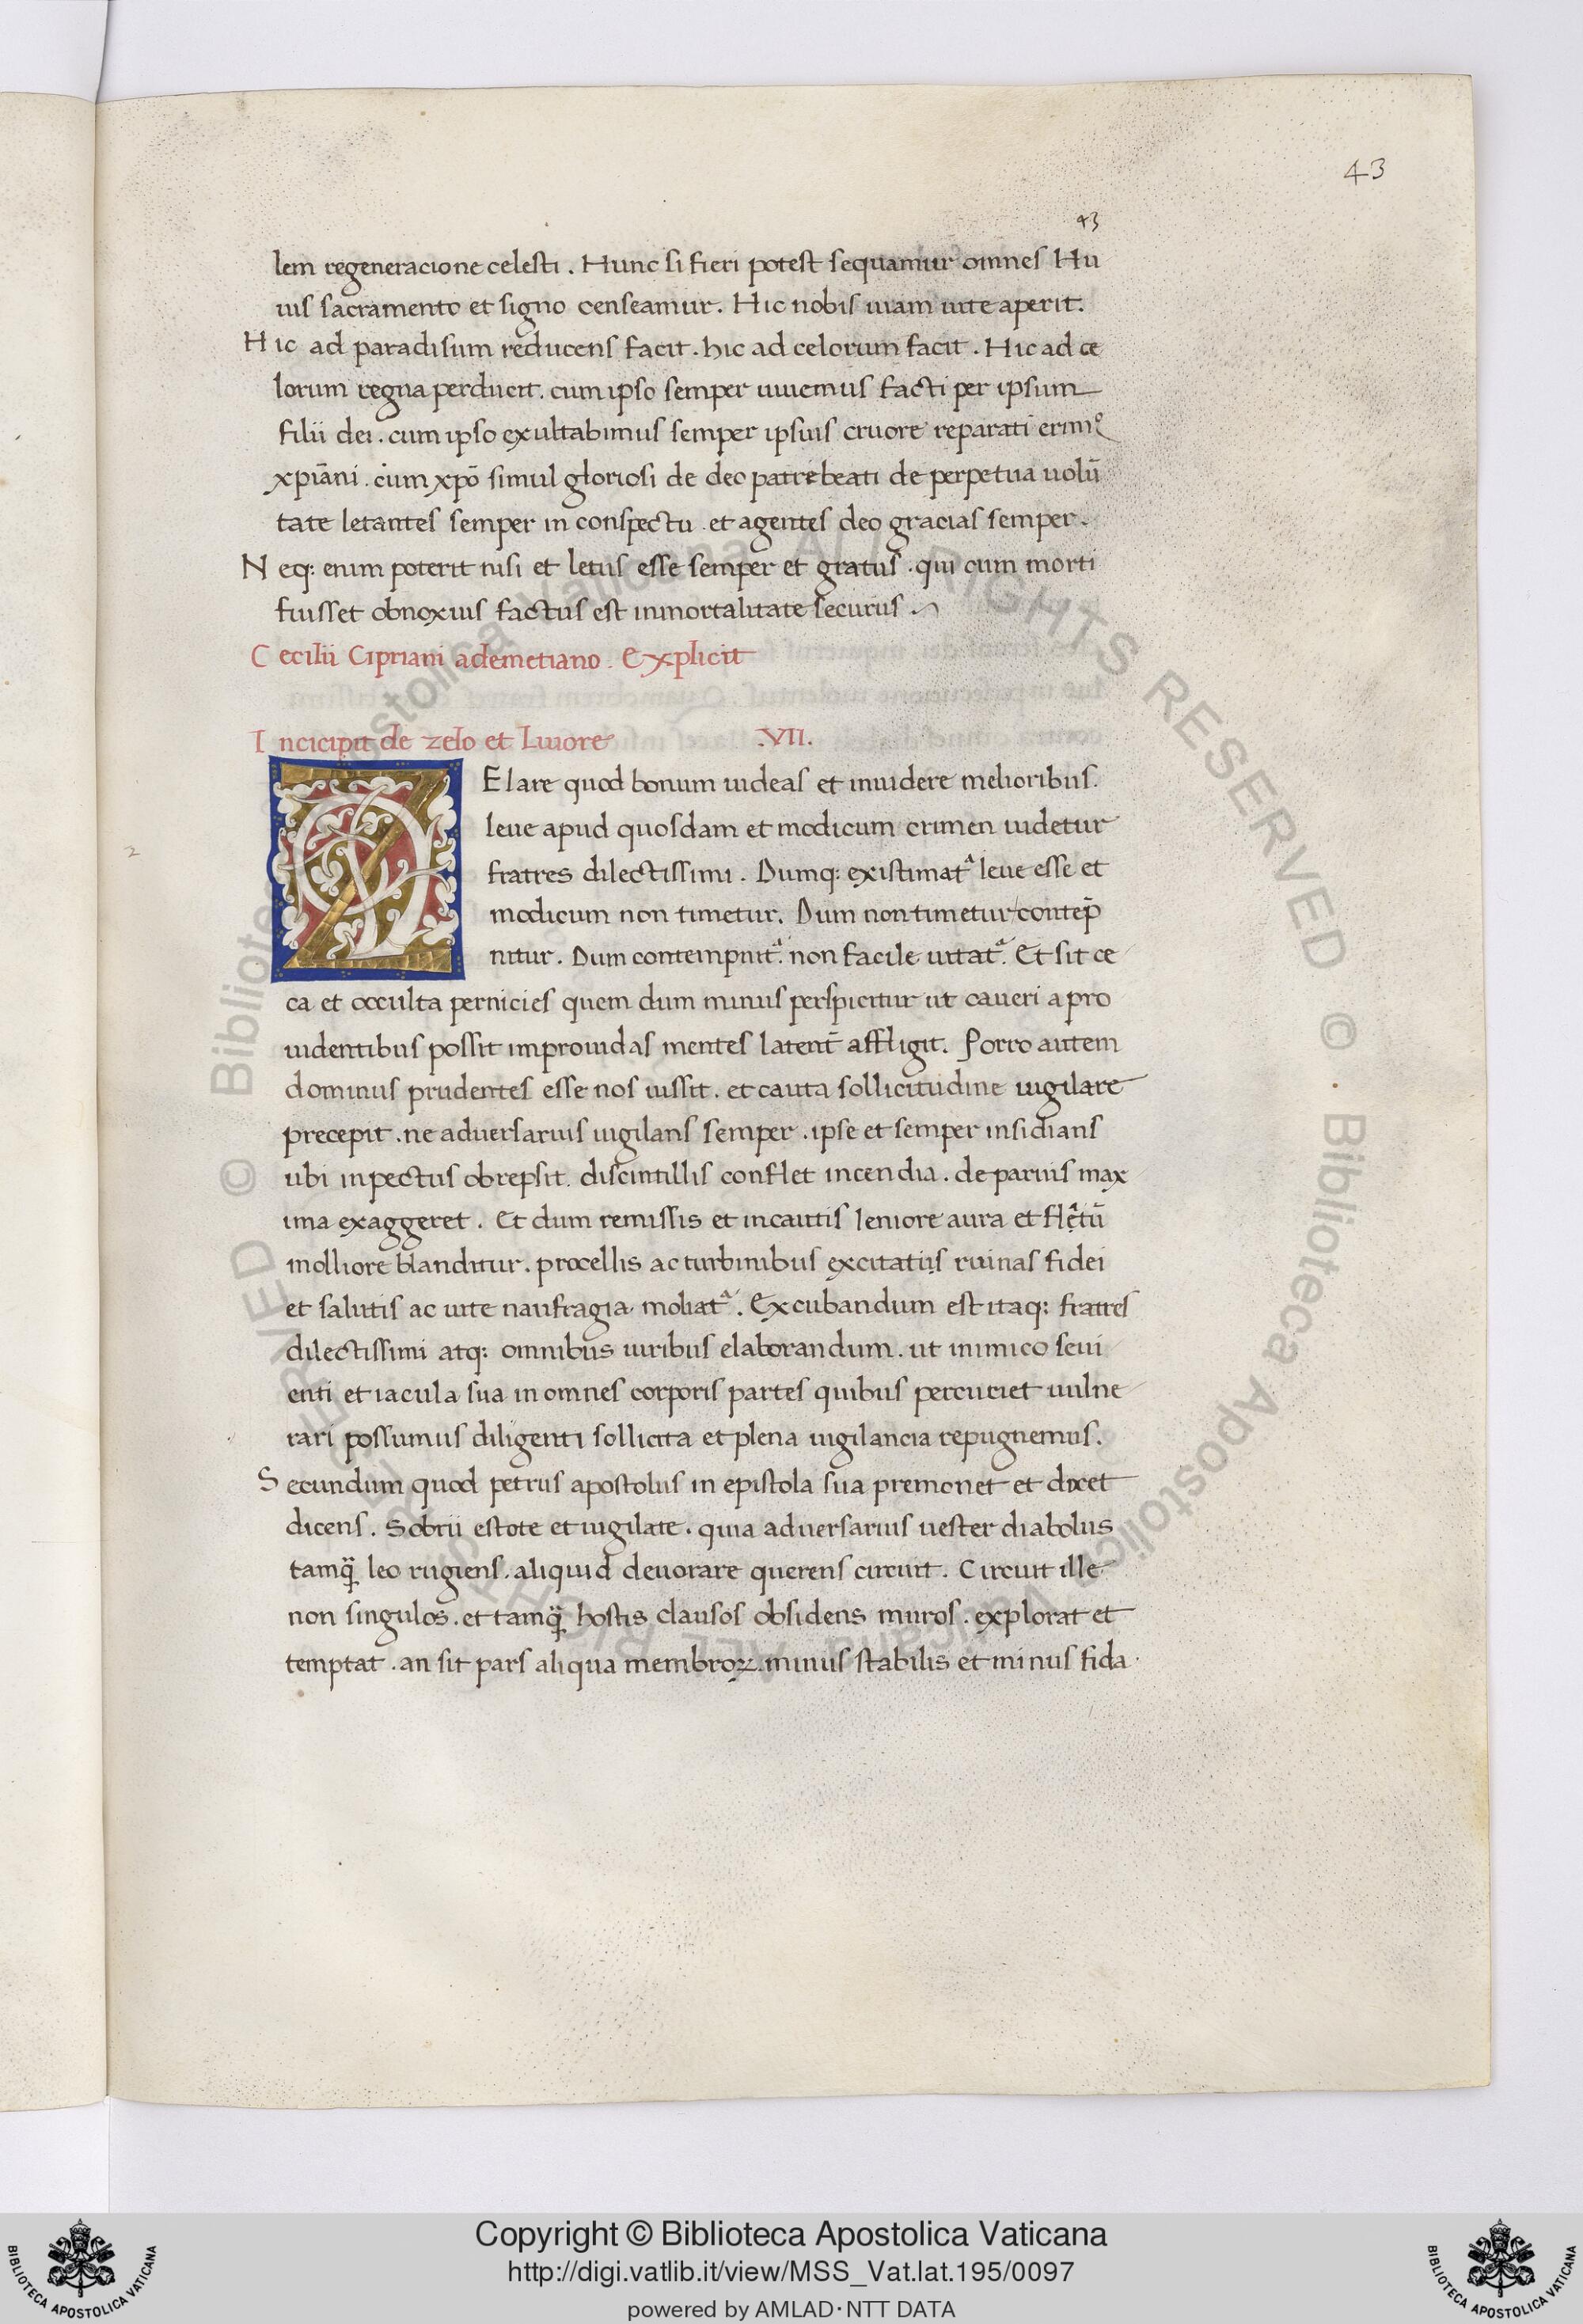 43
43
lem regeneracione celesti . Hunc si fieri potest sequamur omnes Hu
ius sacramento et signo censeamur . Hic nobis uiam uite aperit .
Hic ad paradisum reducens facit . hic ad celorum facit . Hic ad ce
lorum regna perducit . cum ipso semper uiuemus facti per ipsum
filii dei . cum ipso exultabimus semper ipsius cruore reparati erimꝰ
xp̄iani . cum xp̄o simul gloriosi de deo patre beati de perpetua uolū
tate letantes semper in conspectu . et agentes deo gracias semper .
Neq: enim poterit nisi et letus esse semper et gratus . qui cum morti
fuisset obnoxius factus est inmortalitate securus .
Cecilii Cipriani ademetiano . Explicit
Incicipit de zelo et Liuore .VII.
ZElare quod bonum uideas et inuidere melioribus .
leue apud quosdam et modicum crimen uidetur
fratres dilectissimi . Dumq: existimat᷑ leue esse et
modicum non timetur . Dum non timetur contep̄
nitur . Dum contempnit᷑ . non facile uitat᷑ . Et sit ce
ca et occulta pernicies quem dum minus perspicitur ut caueri a pro
uidentibus possit improuidas mentes latent᷑ affligit . Porro autem
dominus prudentes esse nos iussit . et cauta sollicitudine uigilare
precepit . ne aduersarius uigilans semper . ipse et semper insidians
ubi inpectus obrepsit . discintillis conflet incendia . de paruis max
ima exaggeret . Et dum remissis et incautis leniore aura et
molliore blanditur . procellis ac turbinibus excitatiis ruinas fidei
et salutis ac uite naufragia moliat᷑ . Excubandum est itaq: fratres
dilectissimi atq: omnibus uiribus elaborandum . ut inimico seui
enti et iacula sua in omnes corporis partes quibus percuciet uulne
rari possumus diligenti sollicita et plena uigilancia repugnemus .
Secundum quod petrus apostolus in epistola sua premonet et docet
dicens . Sobrii estote et uigilate . quia aduersarius uester diabolus
tamq̄ leo rugiens . aliquid deuorare querens circuit . Circuit ille
non singulos . et tamq̄ hostis clausos obsidens muros . explorat et
temptat . an sit pars aliqua membroꝝ . minus stabilis et minus fida .
2
© Biblioteca Apostolica Vaticana ALL RIGHTS RESERVED © Biblioteca Apostolica Vaticana ALL RIGHTS RESERVED
Copyright © Biblioteca Apostolica Vaticana
http://digi.vatlib.it/view/MSS_Vat.lat.195/0097
powered by AMLAD·NTT DATA
BIBLIOTECA APOSTOLICA VATICANA
BIBLIOTECA APOSTOLICA VATICANA